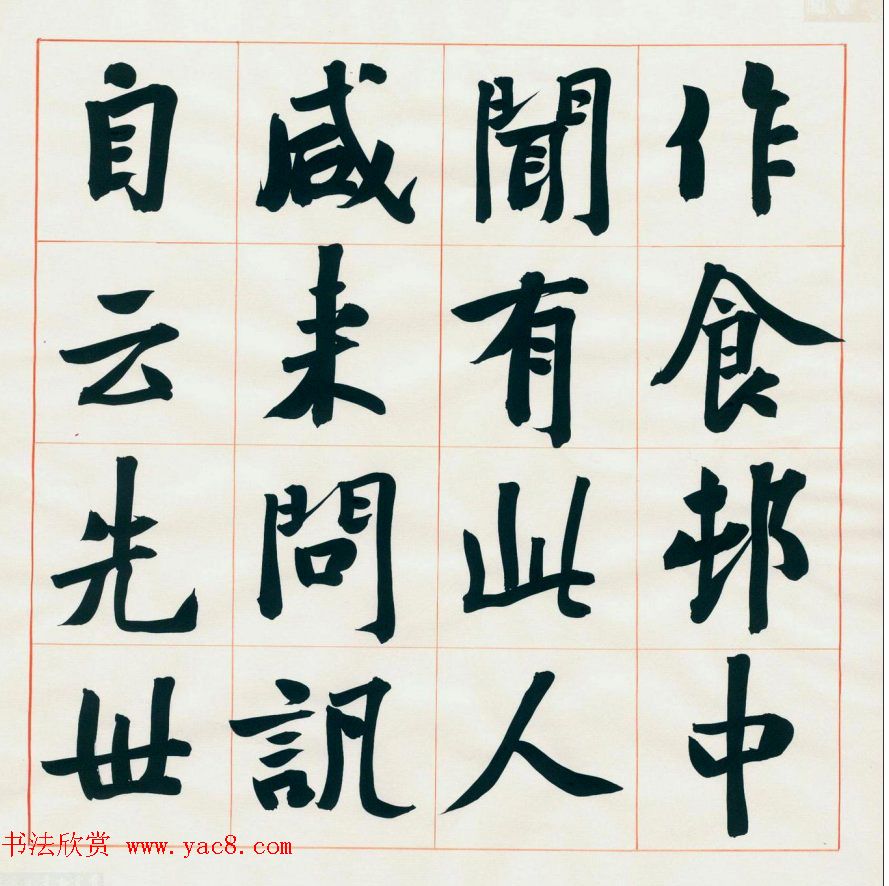 作食邨中
聞有此人
咸来問訊
自云先世
书法欣赏 www.yac8.com